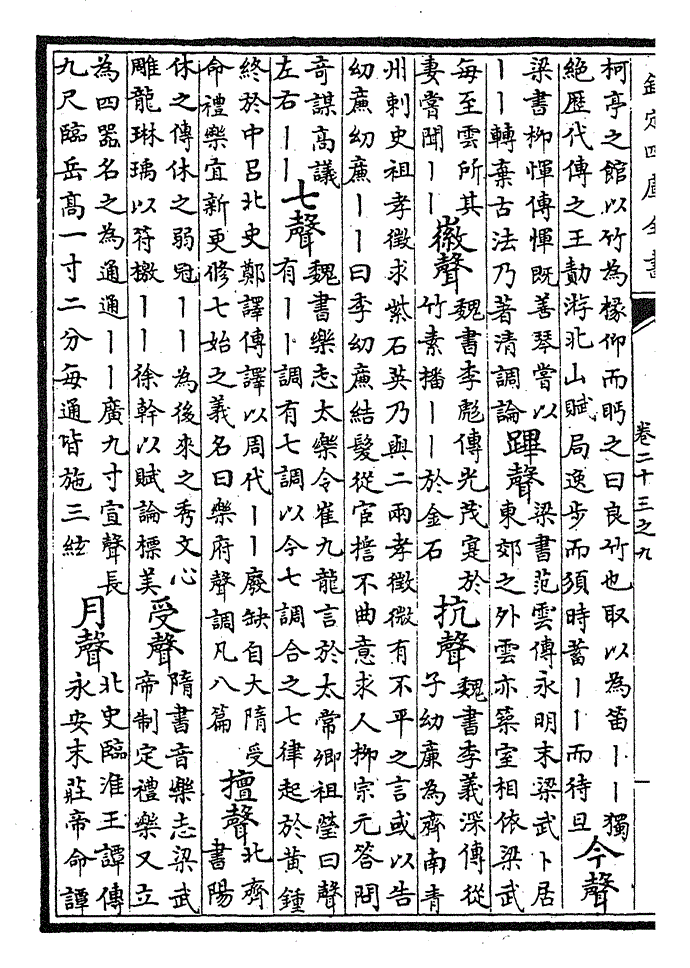 欽定四庫全書
卷二十三之九
柯亭之館以竹為椽仰而眄之曰良竹也取以為笛丨丨獨
絕歷代傳之王勣游北山賦局逸步而須時蓄丨丨而待旦
今聲
梁書柳惲傳惲既善琴嘗以
丨丨轉棄古法乃著清調論
蹕聲
梁書范雲傳永明末梁武卜居
東郊之外雲亦築室相依梁武
每至雲所其
妻嘗聞丨丨
徽聲
魏書李彪傳光茂寔於
竹素播丨丨於金石
抗聲
魏書李義深傳從
子幼亷為齊南青
州刺史祖孝徵求紫石英乃與二兩孝徵微有不平之言或以告
幼亷幼亷丨丨曰李幼亷結髮從宦擔不曲意求人柳宗元答問
奇謀高議
左右丨丨
七聲
魏書樂志太樂令崔九龍言於太常卿祖瑩曰聲
有丨丨調有七調以今七調合之七律起於黄鍾
終於中呂北史鄭譯傳譯以周代丨丨廢缺自大隋受
命禮樂宜新更修七始之義名曰樂府聲調凡八篇
擅聲
北齊
書陽
休之傳休之弱冠丨丨為後來之秀文心
雕龍琳瑀以符檄丨丨徐幹以賦論標美
受聲
隋書音樂志梁武
帝制定禮樂又立
為四器名之為通通丨丨廣九寸宣聲長
九尺臨岳高一寸二分每通皆施三絃
月聲
北史臨淮王譚傳
永安末莊帝命譚